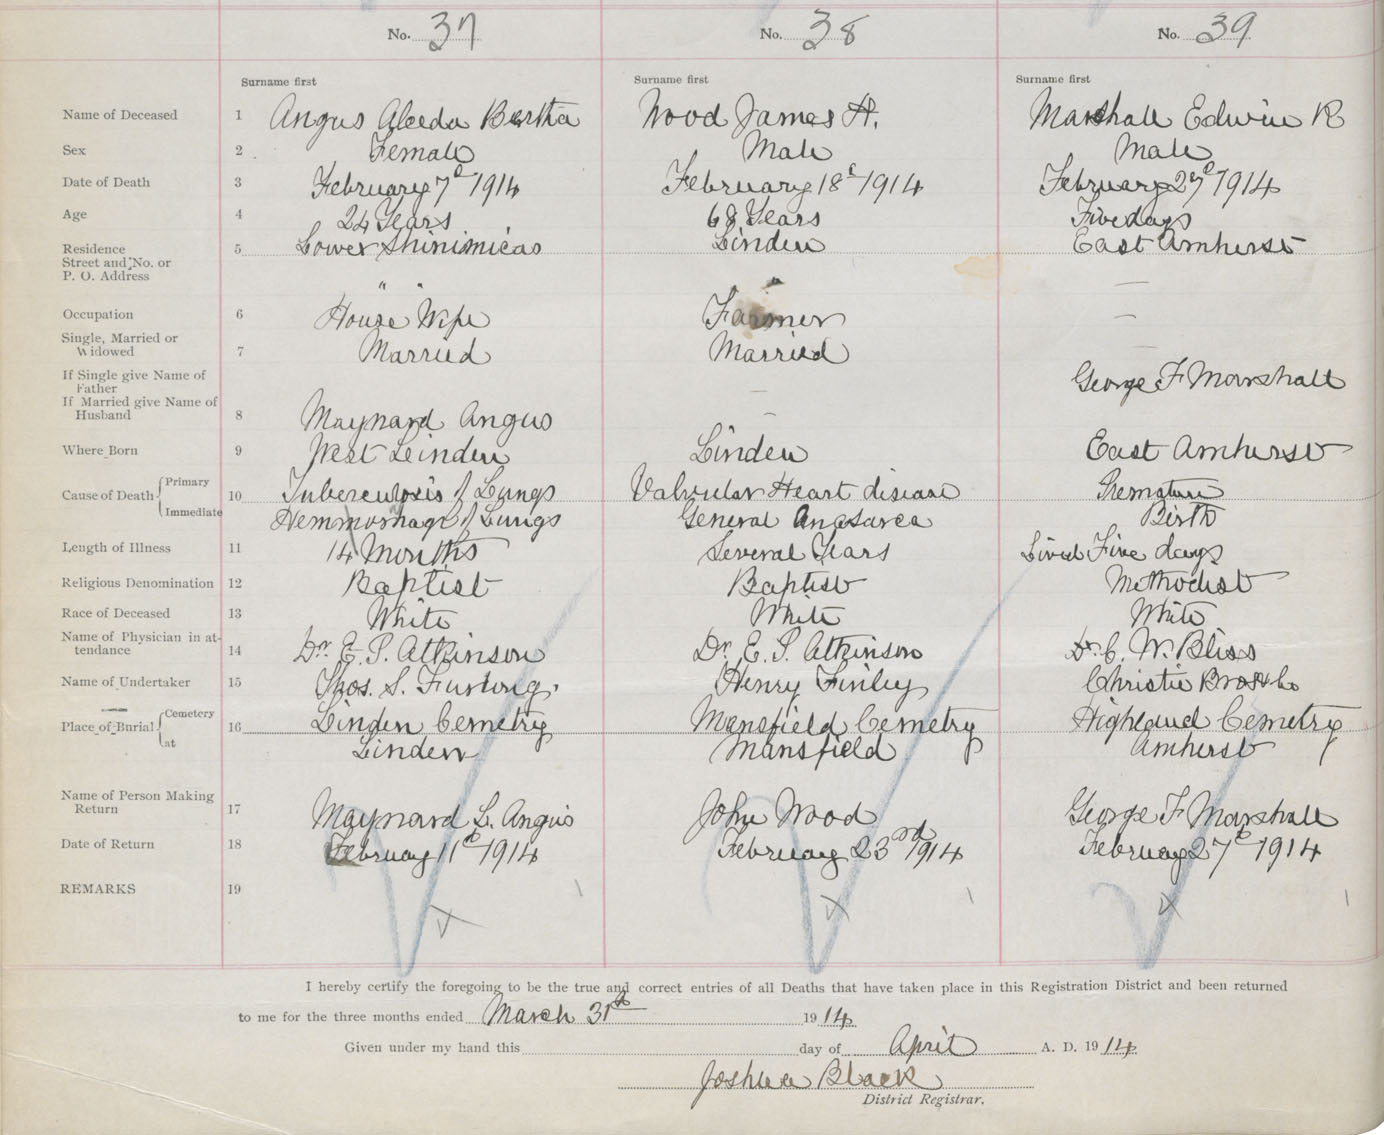 No. 37 No. 38 No. 39
Surname first Surname first Surname first
Name of Deceased 1 Angus Aleeda Bertha Wood James H. Marshall Edwin R
Sex 2 Female Male Male
Date of Death 3 February 7th 1914 February 18th 1914 February 27th 1914
Age 4 24 Years 68 Years Five days
Residence 5 Lower Shinimicas Linden East Amherst
Street and No. or
P. O. Address " " " —
Occupation 6 House Wife Farmer —
Single, Married or
Widowed 7 Married Married —
If Single give Name of
Father — George F Marshall
If Married give Name of
Husband 8 Maynard Angus —
Where Born 9 West Leinden Linden East Amherst
Cause of Death { Primary 10 Tuberculosis of Lungs Valvular Heart disease Premature
Immediate Hemmorhage of Lungs General Anasarca Birth
Length of Illness 11 14 Months Several Years Lived Five days
Religious Denomination 12 Baptist Baptist Methodist
Race of Deceased 13 White White White
Name of Physician in at-
tendance 14 Dr. E. P. Atkinson Dr. E. P. Atkinson Dr. C. W. Bliss
Name of Undertaker 15 Thos. S. Furlong. Henry Finley Christie Bros & Co
Place of Burial { Cemetery 16 Linden Cemetry Mansfield Cemetry Highland Cemetry
at Linden Mansfield Amherst
Name of Person Making
Return 17 Maynard L. Angus John Wood George F Marshall
Date of Return 18 February 11th 1914 February 23rd 1914 February 27th 1914
REMARKS 19
I hereby certify the foregoing to be the true and correct entries of all Deaths that have taken place in this Registration District and been returned
to me for the three months ended March 31st 1914
Given under my hand this day of April A. D. 1914
Joshua Black
District Registrar.